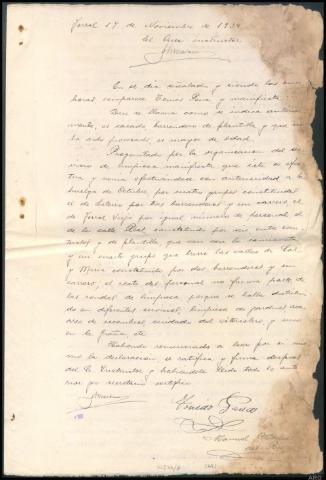 Ferrol 17 de Noviembre de 1934
El Juez instructor
En el dia señalado y siendo las
horas comparece Tomas Pena y manifiesta
Que se llama como se indica anterior
mente, es casado, barrendero de plantilla y que no
ha sido procesado, es mayor de edad.
Preguntado por la organizacion del ser
vicio de limpieza manifiesta que este se efec
tua y venia efectuandose con anterioridad a la
huelga de Octubre por cuatro grupos constituidos
el de Esteiro por tres barrenderos y un carrero, el
de Ferrol Viejo por igual numero de personal, el
de la calle Real constituido por
y de plantilla, que van con la camioneta
y un cuarto grupo que barre las calles de Sol
y Maria constituido por dos barrenderos y un
carrero, el resto del personal no forma parte de
las rondas de limpieza porque se halla destina
do en diferentes servicios, limpieza de jardines,
de escombros, cuidado del
en la etc
Habiendo renunciado a leer por si mis
mo la declaracion se ratifica y firma despues
del Sr Instructor y habiendole leido todo lo ante
rior yo secretario certifico
Manuel